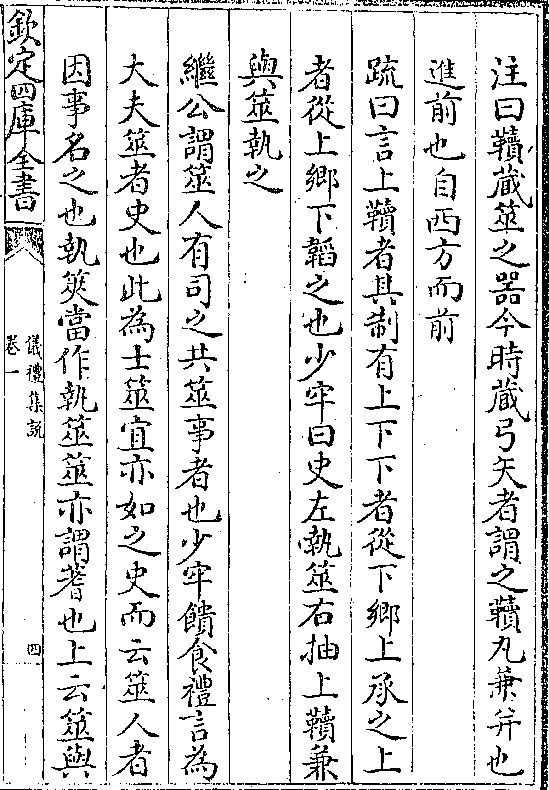 注曰韥藏筮之器今時藏弓矢者謂之韥丸兼并也
進前也自西方而前
疏曰言上韥者其制有上下下者從下鄉上承之上
者從上鄉下韜之也少牢曰史左執筮右抽上韥兼
與筮執之
繼公謂筮人有司之共筮事者也少牢饋食禮言為
大夫筮者史也此為士筮宜亦如之史而云筮人者
因事名之也執筴當作執筮筮亦謂蓍也上云筮與
欽定四庫全書
儀禮集說
卷一
四